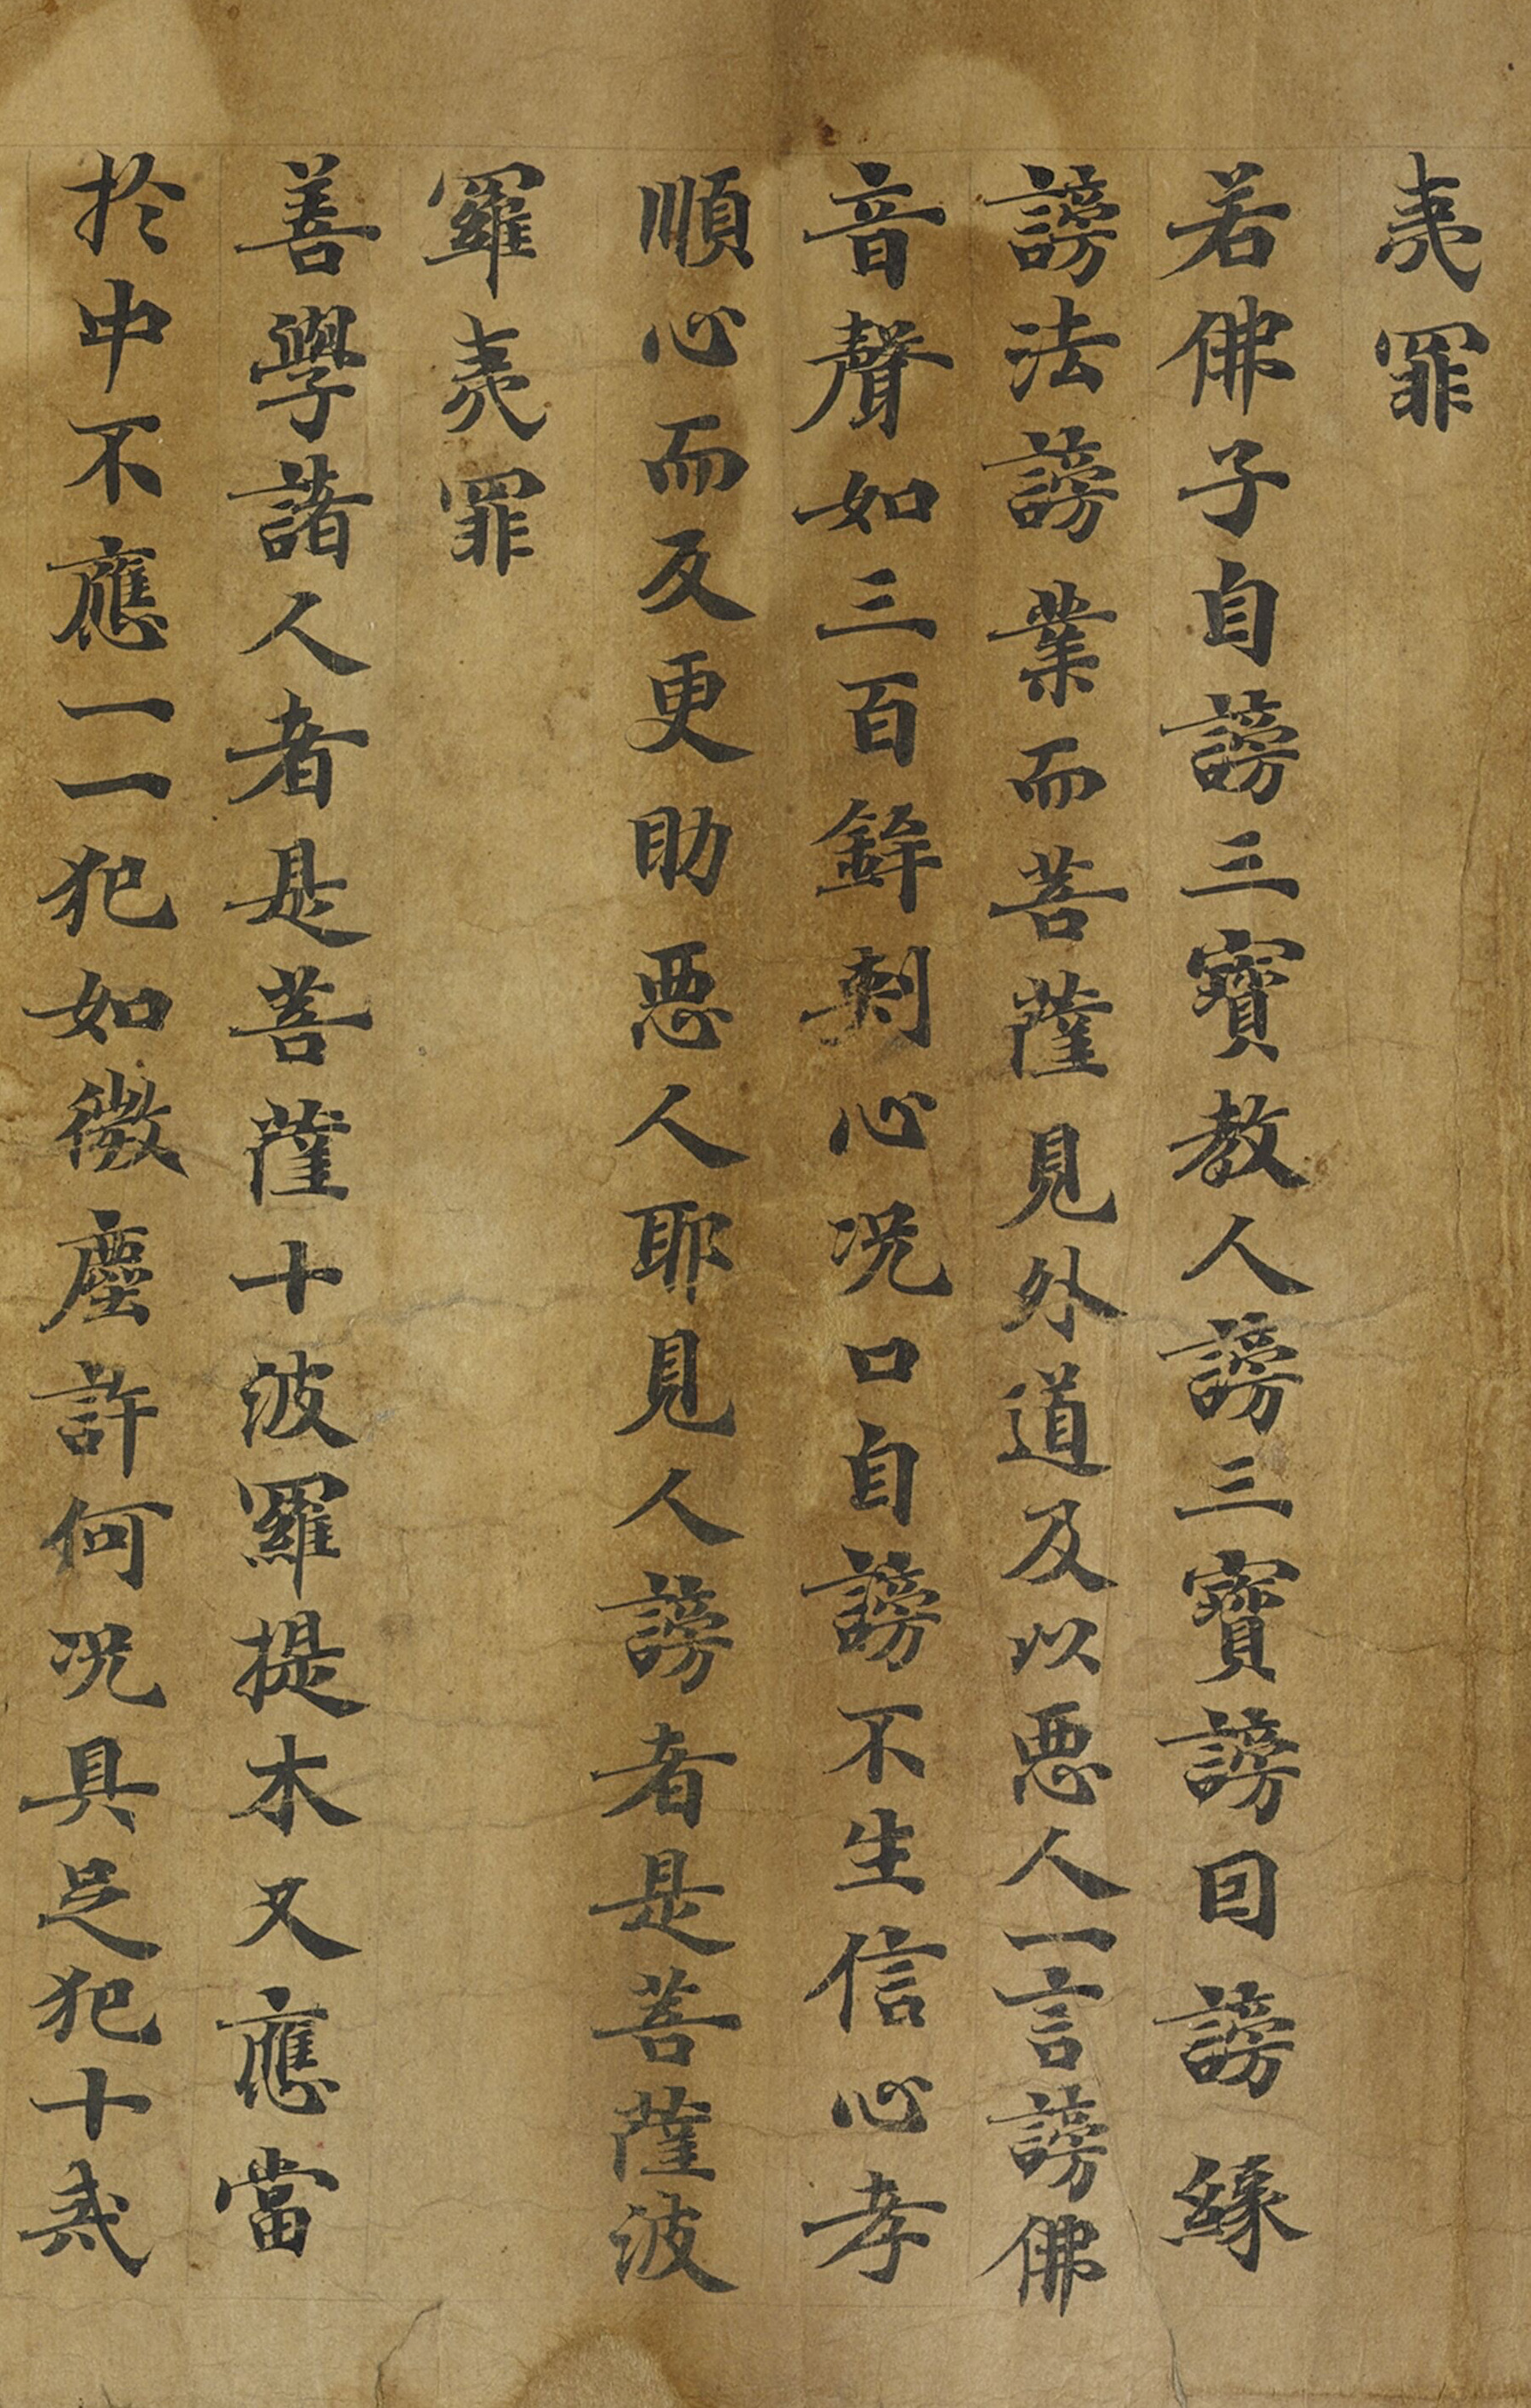 夷罪
若佛子自謗三寶教人謗三寶謗因謗緣
謗法謗業而菩薩見外道及以惡人一言謗佛
音聲如三百鉾刺心況口自謗不生信心孝
順心而反更助惡人耶見人謗者是菩薩波
羅夷罪
善學諸人者是菩薩十波羅提木叉應當
於中不應一一犯如微塵許何況具足犯十戒